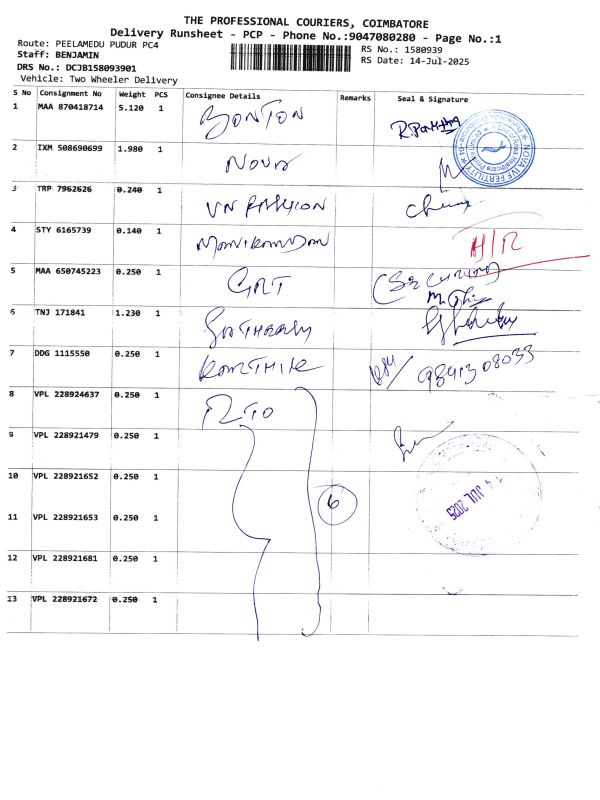 THE PROFESSIONAL COURIERS, COIMBATORE
Delivery Runsheet - PCP - Phone No.:9047080280 - Page No.:1
Route: PEELAMEDU PUDUR PC4
Staff: BENJAMIN
DRS No.: DCJB158093901
Vehicle: Two Wheeler Delivery
RS No.: 1580939
RS Date: 14-Jul-2025
S No Consignment No Weight PCS Consignee Details Remarks Seal & Signature
1 MAA 870418714 5.120 1 BONTON
NOVA IVF FERTILITY
2 IXM 508690699 1.980 1 NOVA
3 TRP 7962626 0.240 1
4 STY 6165739 0.140 1 H/R
5 MAA 650745223 0.250 1 GRT
6 TNJ 171841 1.230 1
7 DDG 1115550 0.250 1 9841308033
8 VPL 228924637 0.250 1 RTO
9 VPL 228921479 0.250 1
10 VPL 228921652 0.250 1 6
14 JUL 2025
11 VPL 228921653 0.250 1
12 VPL 228921681 0.250 1
13 VPL 228921672 0.250 1